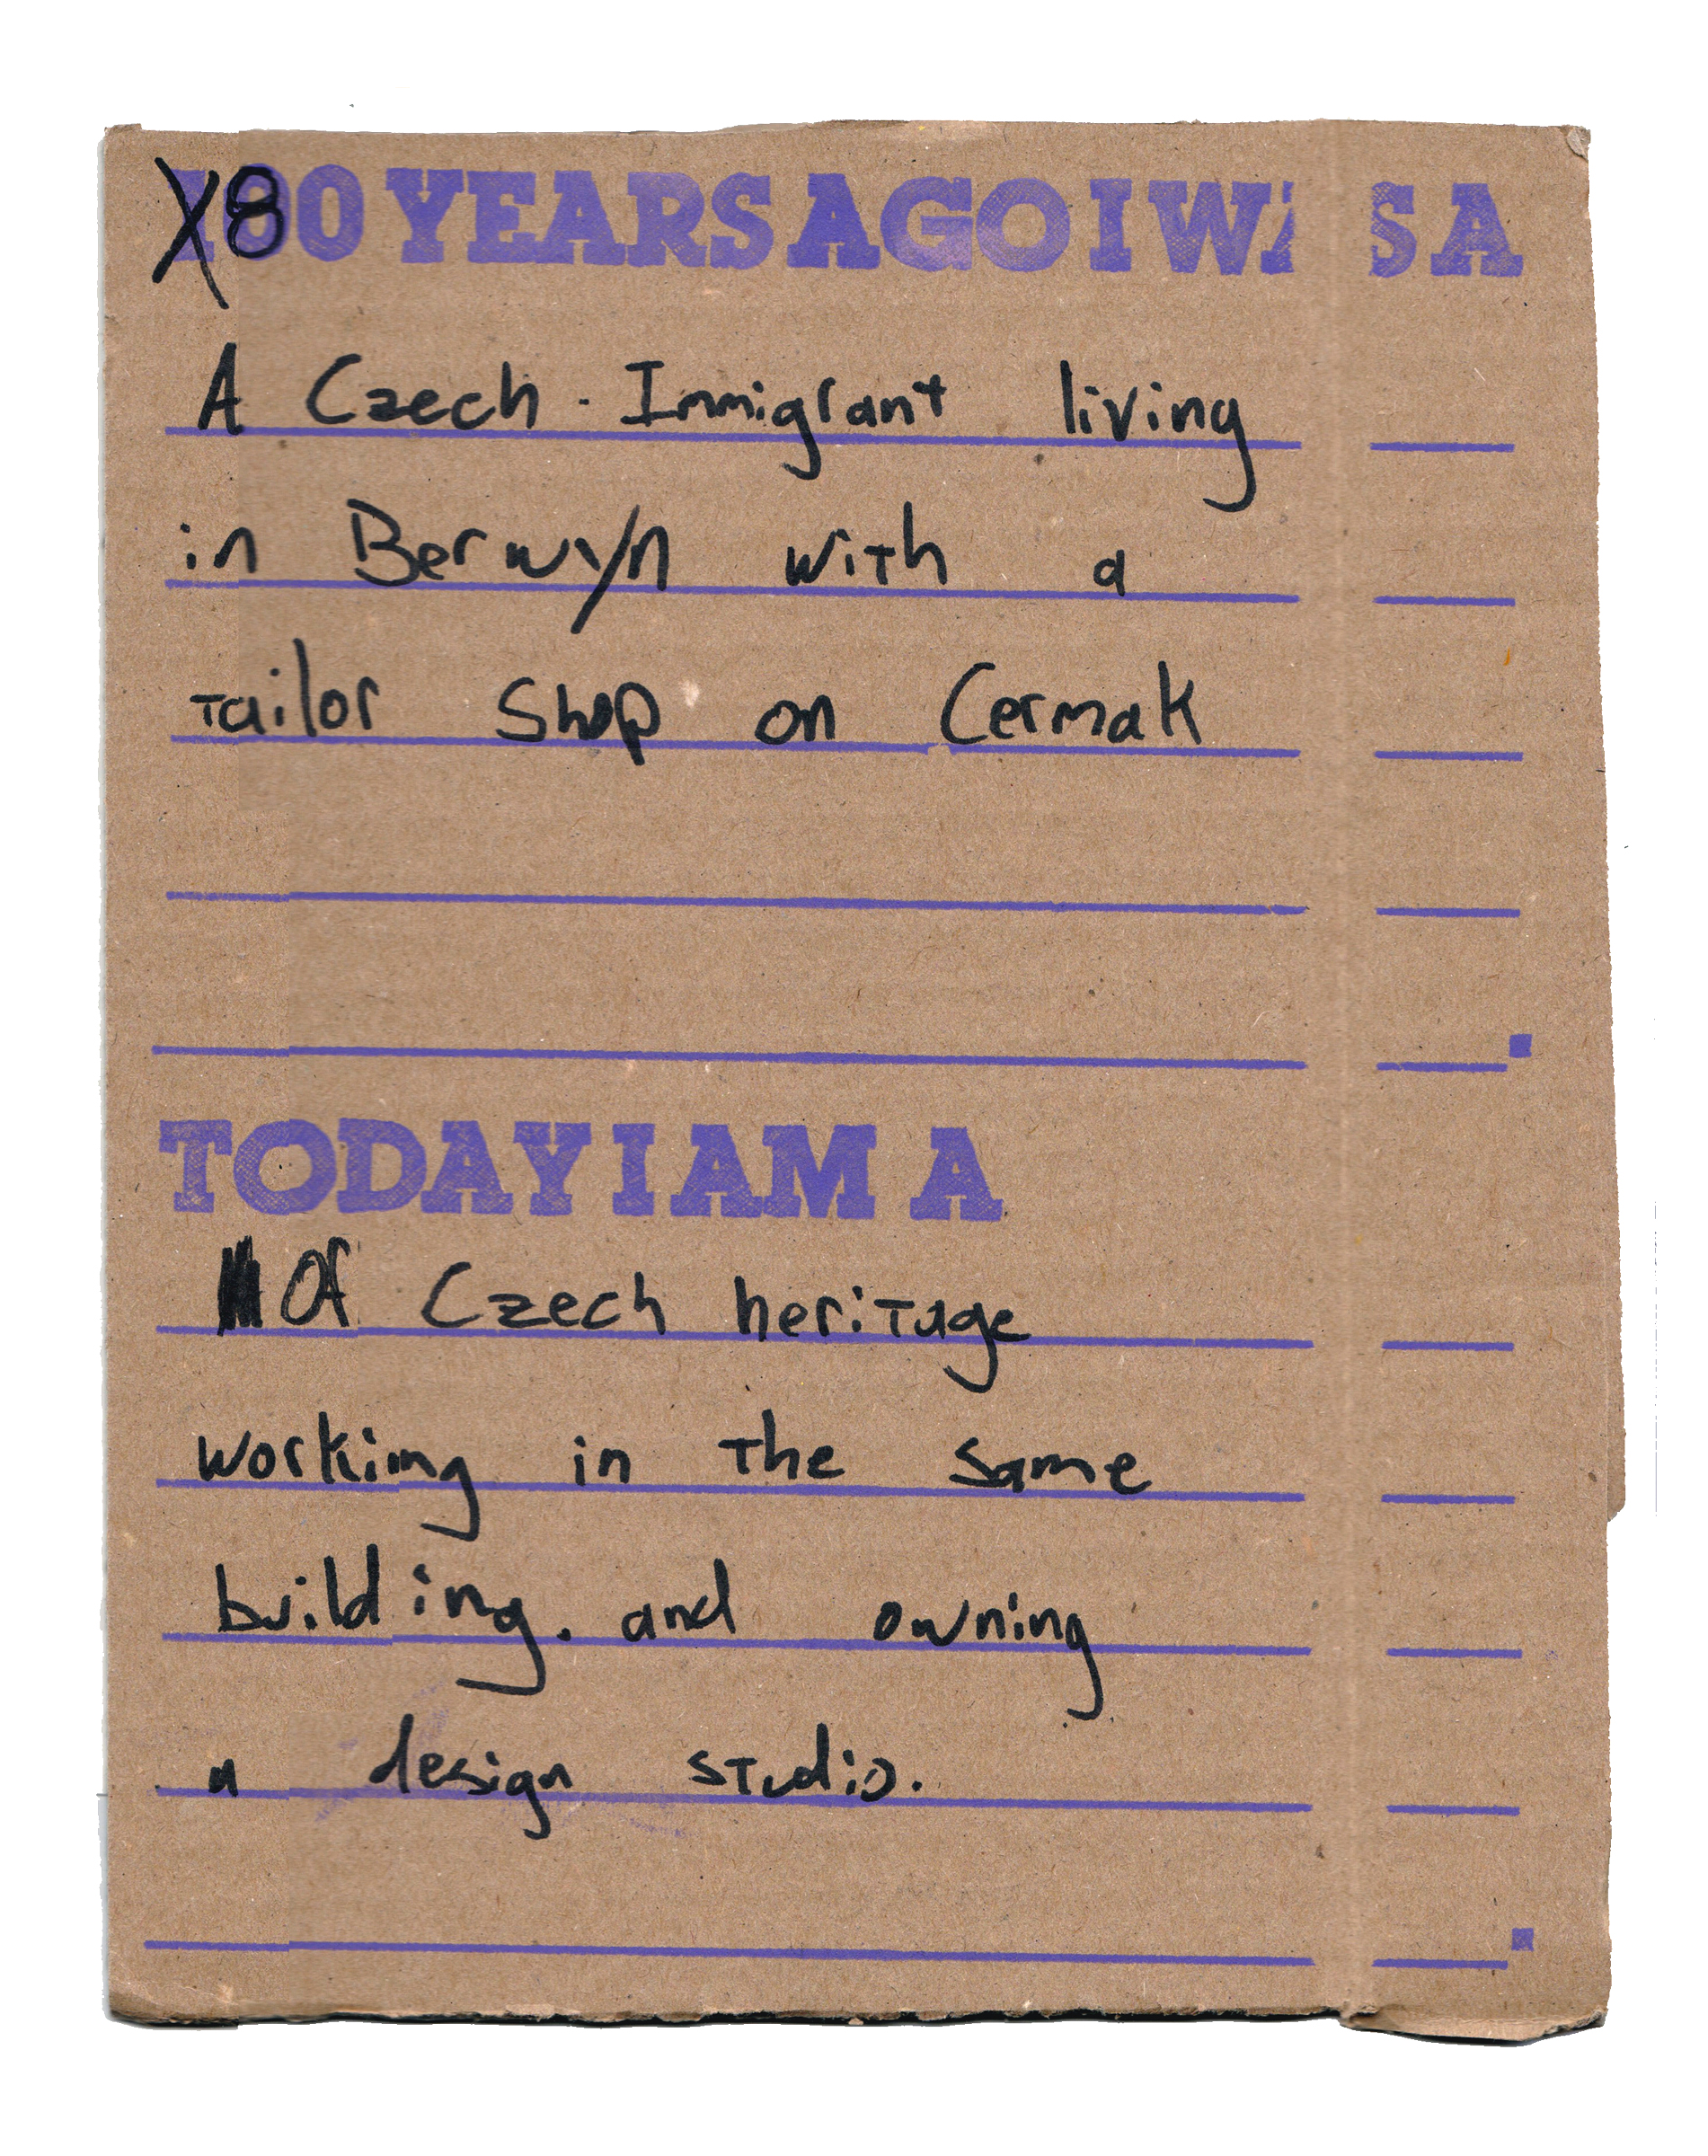 80 YEARS AGO I WAS A
A Czech - Immigrant living
in Berwyn with a
Tailor Shop on Cermak
TODAY I AM A
Of Czech heritage
working in the same
building. and owning
a design studio.